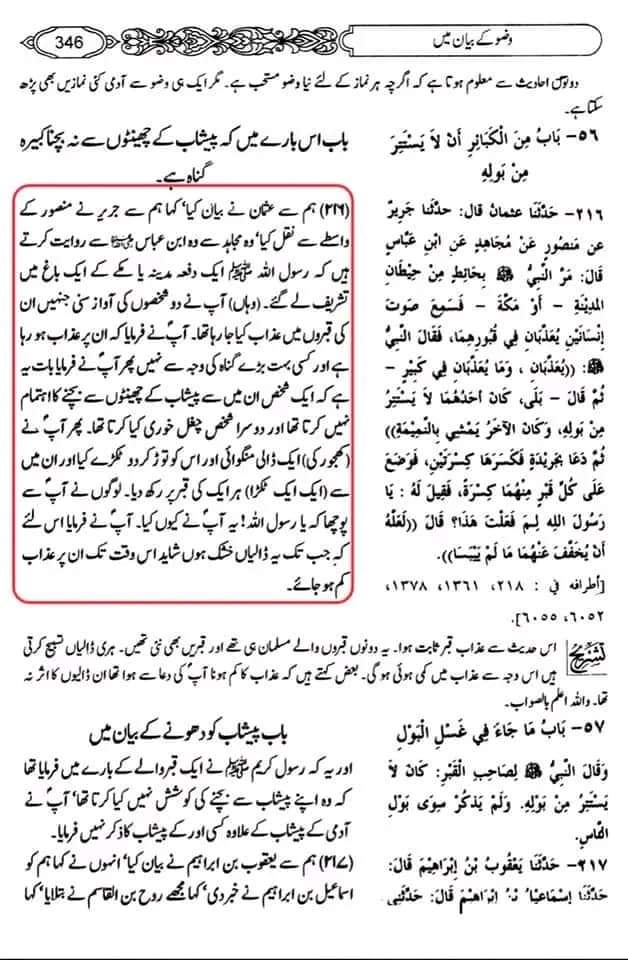 346
وضو کے بیان میں
دونوں احادیث سے معلوم ہوتا ہے کہ اگرچہ ہر نماز کے لئے نیا وضو مستحب ہے۔ مگر ایک ہی وضو سے آدمی کئی نمازیں بھی پڑھ
سکتا ہے۔
٥٦- بَابُ مِنَ الْكَبَائِرِ أَنْ لاَ يَسْتَتِرَ
مِنْ بَوْلِهِ
باب اس بارے میں کہ پیشاب کے چھینٹوں سے نہ بچنا کبیرہ
گناہ ہے۔
٢١٦- حَدَّثَنَا عُثمانُ قال: حدَّثَنا جَرِيرٌ
عن مَنصُورٍ عَنْ مُجَاهِدٍ عَنِ ابْنِ عَبَّاسٍ
قَالَ: مَرَّ النَّبِيُّ ﷺ بِحَائِطٍ مِنْ حِيْطَانِ
المدِيْنَةِ – أَوْ مَكَّةَ – فَسَمِعَ صَوتَ
إِنْسَانَيْنِ يُعَذَّبَانِ فِي قُبُورِهِمَا، فَقَالَ النَّبِيُّ
ﷺ: ((يُعَذَّبَانِ، وَمَا يُعَذَّبَانِ فِي كَبِيْرٍ –
ثُمَّ قَالَ – بَلَى، كَانَ أَحَدُهُمَا لاَ يَسْتَتِرُ
مِنْ بَولِهِ، وَكَانَ الآخَرُ يَمْشِي بِالنَّمِيْمَةِ))
ثُمَّ دَعَا بِجَرِيْدَةٍ فَكَسَرَهَا كِسْرَتَيْنِ، فَوَضَعَ
عَلَى كُلِّ قَبْرٍ مِنْهُمَا كِسْرَةً، فَقِيلَ لَهُ : يَا
رَسُولَ اللهِ لِمَ فَعَلْتَ هَذَا؟ قَالَ ((لَعَلَّهُ
أَنْ يُخَفَّفَ عَنْهُمَا مَا لَمْ يَيْبَسَا)).
[أطرافه في : ٢١٨، ١٣٦١، ١٣٧٨،
٦٠٥٢، ٦٠٥٥].
(۲۱۶) ہم سے عثمان نے بیان کیا' کہا ہم سے جریر نے منصور کے
واسطے سے نقل کیا' وہ مجاہد سے وہ ابن عباس رضی اللہ عنہما سے روایت کرتے
ہیں کہ رسول اللہ ﷺ ایک دفعہ مدینہ یا مکے کے ایک باغ میں
تشریف لے گئے۔ (وہاں) آپ نے دو شخصوں کی آواز سنی جنہیں ان
کی قبروں میں عذاب کیا جا رہا تھا۔ آپؐ نے فرمایا کہ ان پر عذاب ہو رہا
ہے اور کسی بہت بڑے گناہ کی وجہ سے نہیں پھر آپؐ نے فرمایا بات یہ
ہے کہ ایک شخص ان میں سے پیشاب کے چھینٹوں سے بچنے کا اہتمام
نہیں کرتا تھا اور دوسرا شخص چغل خوری کیا کرتا تھا۔ پھر آپؐ نے
(کھجور کی) ایک ڈالی منگوائی اور اس کو توڑ کر دو ٹکڑے کیا اور ان میں
سے (ایک ایک ٹکڑا) ہر ایک کی قبر پر رکھ دیا۔ لوگوں نے آپؐ سے
پوچھا کہ یا رسول اللہ! یہ آپؐ نے کیوں کیا۔ آپؐ نے فرمایا اس لئے
کہ جب تک یہ ڈالیاں خشک ہوں شاید اس وقت تک ان پر عذاب
کم ہو جائے۔
تشریح
اس حدیث سے عذاب قبر ثابت ہوا۔ یہ دونوں قبروں والے مسلمان ہی تھے اور قبریں بھی نئی تھیں۔ ہری ڈالیاں تسبیح کرتی
ہیں اس وجہ سے عذاب میں کمی ہوئی ہو گی۔ بعض کہتے ہیں کہ عذاب کا کم ہونا آپؐ کی دعا سے ہوا تھا ان ڈالیوں کا اثر نہ
تھا۔ واللہ اعلم بالصواب۔
٥٧- بَابُ مَا جَاءَ فِي غَسْلِ الْبَوْلِ
وَقَالَ النَّبِيُّ ﷺ لِصَاحِبِ الْقَبْرِ: كَانَ لاَ
يَسْتَتِرُ مِنْ بَوْلِهِ. وَلَمْ يَذْكُرْ سِوَى بَوْلِ
النَّاسِ.
٢١٧- حَدَّثَنَا يَعْقُوبُ بْنُ إِبْرَاهِيْمَ قَالَ:
حَدَّثَنَا إِسْمَاعِيلُ بْنُ إِبْرَاهِيْمَ قَالَ: حَدَّثَنِي
باب پیشاب کو دھونے کے بیان میں
اور یہ کہ رسول کریم ﷺ نے ایک قبر والے کے بارے میں فرمایا تھا
کہ وہ اپنے پیشاب سے بچنے کی کوشش نہیں کیا کرتا تھا' آپؐ نے
آدمی کے پیشاب کے علاوہ کسی اور کے پیشاب کا ذکر نہیں فرمایا۔
(۲۱۷) ہم سے یعقوب بن ابراہیم نے بیان کیا' انہوں نے کہا ہم کو
اسماعیل بن ابراہیم نے خبر دی' کہا مجھے روح بن القاسم نے بتلایا' کہا